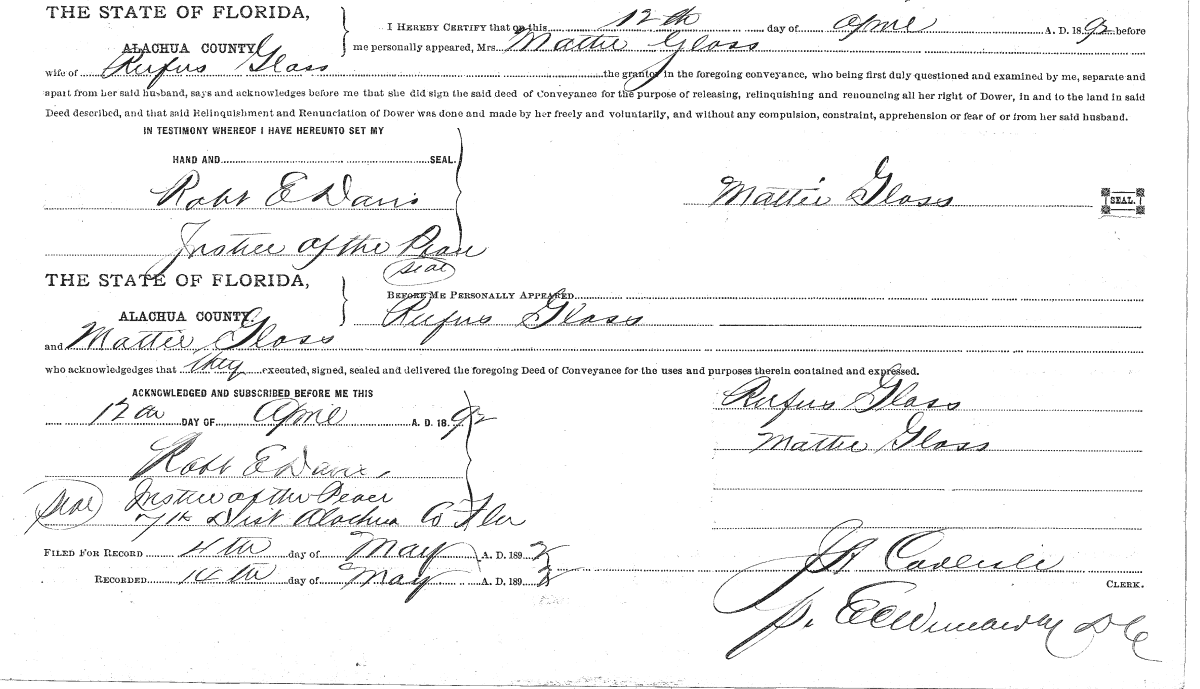 THE STATE OF FLORIDA,
ALACHUA COUNTY.
I HEREBY CERTIFY that on this 12th day of April A. D. 1892 before
me personally appeared, Mrs. Mattie Glass
wife of Rufus Glass the grantor in the foregoing conveyance, who being first duly questioned and examined by me, separate and
apart from her said husband, says and acknowledges before me that she did sign the said deed of Conveyance for the purpose of releasing, relinquishing and renouncing all her right of Dower, in and to the land in said
Deed described, and that said Relinquishment and Renunciation of Dower was done and made by her freely and voluntarily, and without any compulsion, constraint, apprehension or fear of or from her said husband.
IN TESTIMONY WHEREOF I HAVE HEREUNTO SET MY
HAND AND SEAL.
Robt E Davis
Mattie Glass SEAL.
Justice of the Peace
Seal
THE STATE OF FLORIDA,
ALACHUA COUNTY.
BEFORE ME PERSONALLY APPEARED
Rufus Glass
and Mattie Glass
who acknowledgedges that they executed, signed, sealed and delivered the foregoing Deed of Conveyance for the uses and purposes therein contained and expressed.
ACKNOWLEDGED AND SUBSCRIBED BEFORE ME THIS
12th DAY OF April A. D. 1892
Rufus Glass
Mattie Glass
Robt E Davis
Seal Justice of the Peace
7th Dist Alachua Co Fla
FILED FOR RECORD 4th day of May A. D. 1892
RECORDED 14th day of May A. D. 1892
Carlisle
CLERK.
D C